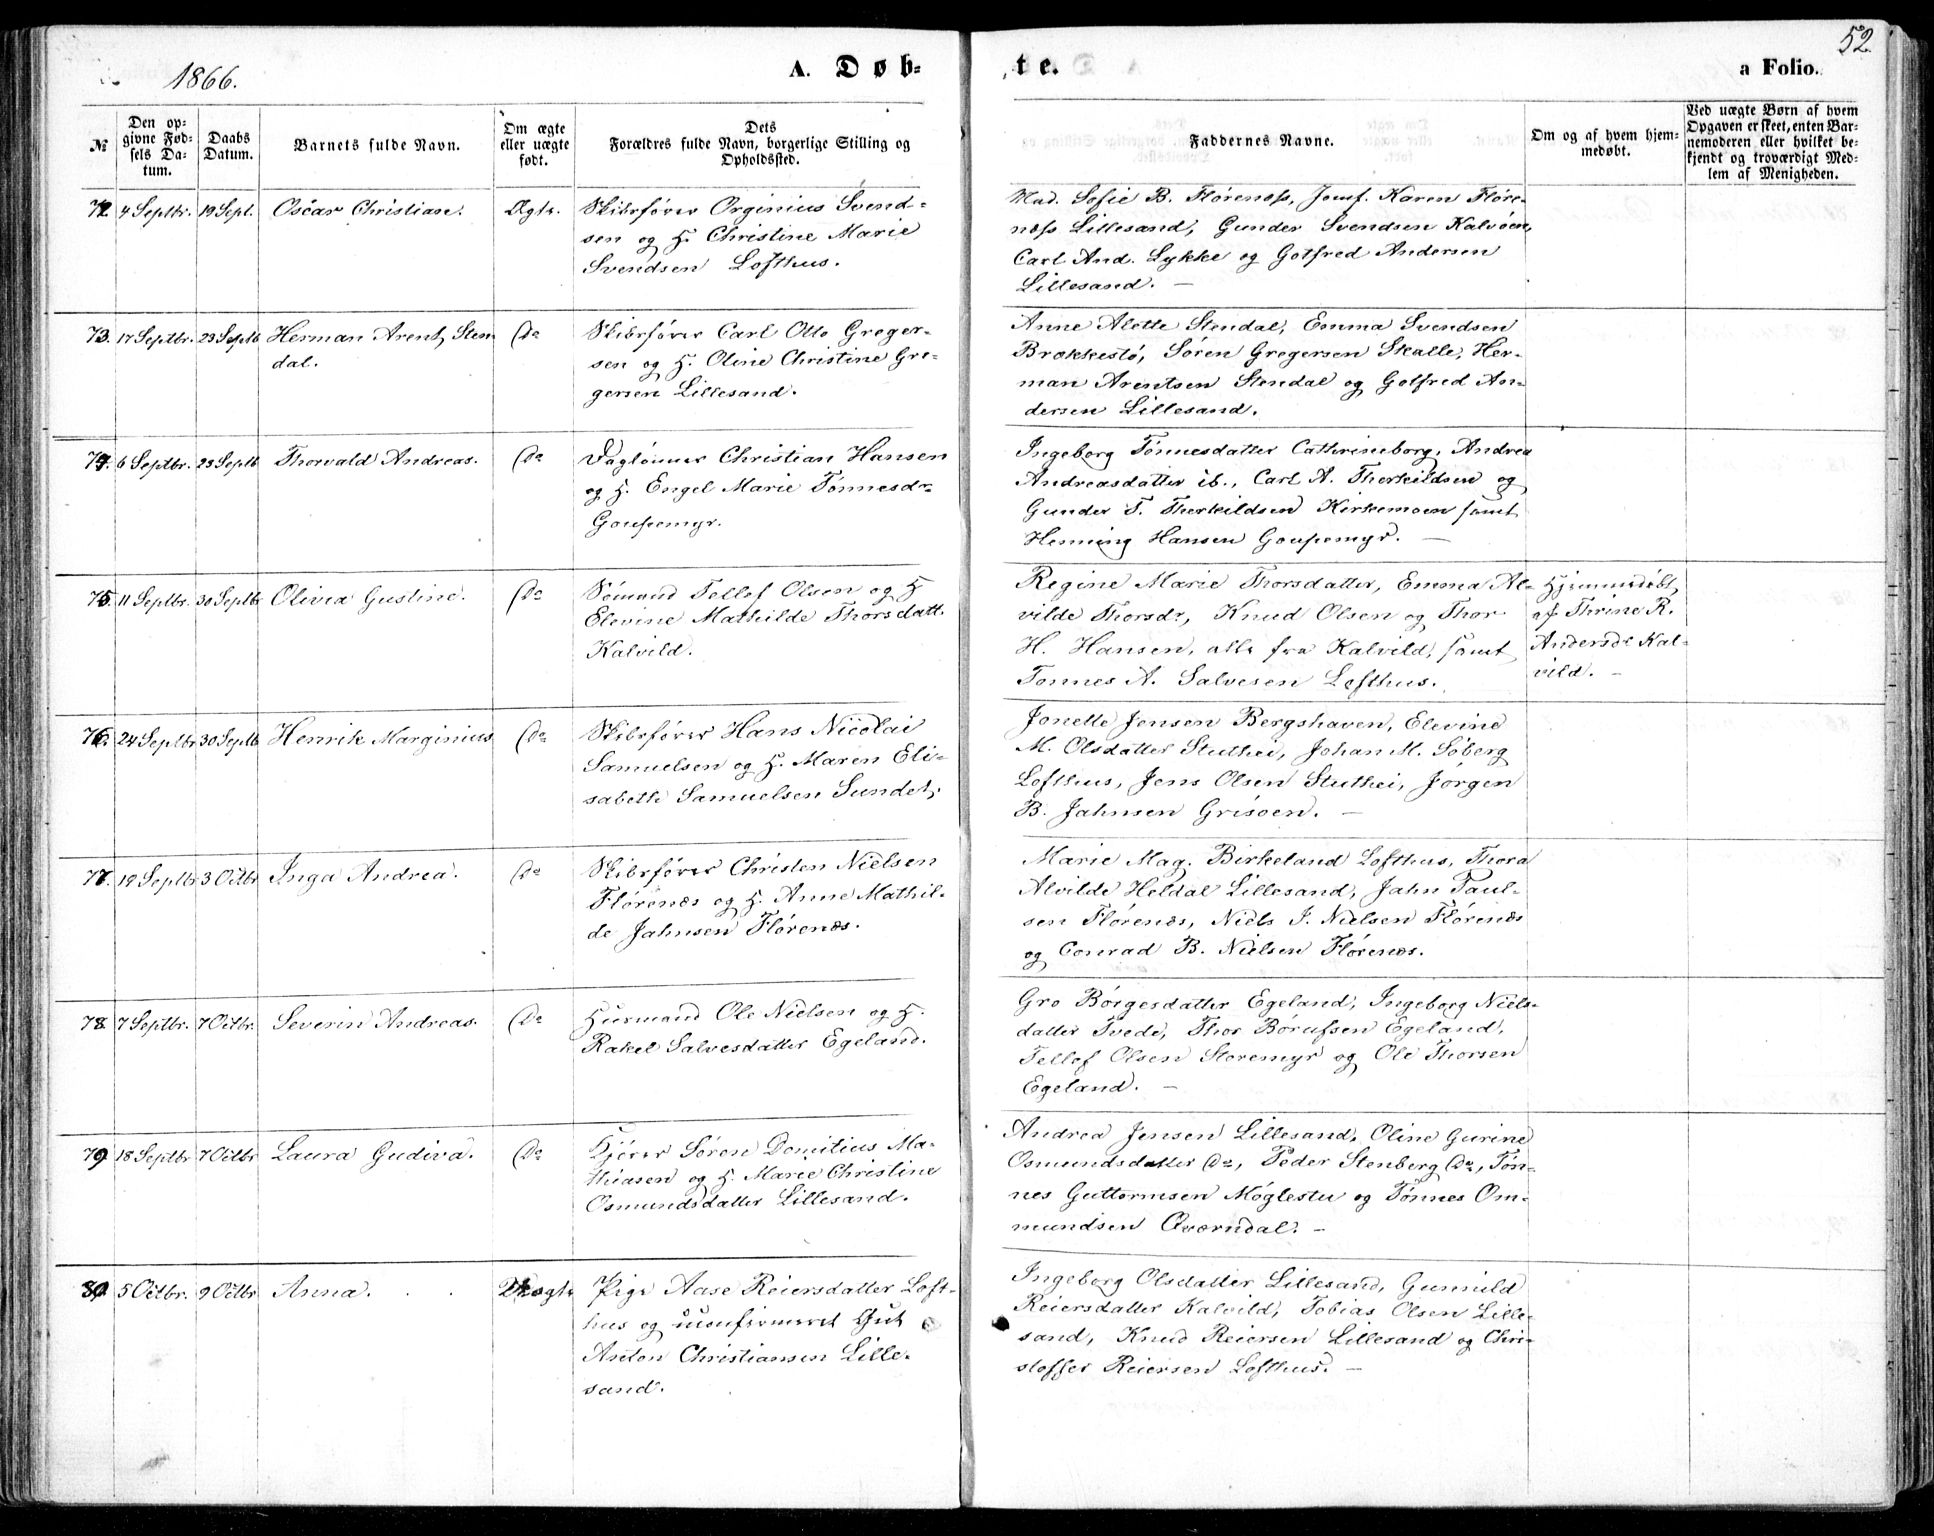 1866.
A. Døb-
te.
a Folio.
52.
№
Den op-
givne Fød-
sels Da-
tum.
Daabs
Datum.
Barnets fulde Navn.
Om ægte
eller uægte
født.
Dets
Forældres fulde Navn, borgerlige Stilling og
Opholdssted.
Faddernes Navne.
Om og af hvem hjem-
medøbt.
Ved uægte Børn af hvem
Opgaven er skeet, enten Bar-
nemoderen eller hvilket be-
kjendt og troværdigt Med-
lem af Menigheden.
72. 4 Septbr. 19 Sept. Oscar Christian. Ægte.
Skibsfører Orginius Svend-
sen og H. Christine Marie
Svendsen Lofthus.
Mad. Sofie B. Flörenæss, Jomf. Karen Flöre-
næss Lillesand, Gunder Svendsen Kalvöen,
Carl And. Lykke og Gotfred Andersen
Lillesand. —
73. 17 Septbr. 23 Septb Herman Arent Sten-
dal.
Do
Skibsfører Carl Otto Greger-
sen og H. Oline Christine Gre-
gersen Lillesand.
Anne Alette Stendal, Emma Svendsen
Brækkestö, Sören Gregersen Skalle, Her-
man Arentsen Stendal og Gotfred An-
dersen Lillesand.
74. 6 Septbr. 23 Septb Thorvald Andreas. Do
Daglönner Christian Hansen
og H. Engel Marie Tönnesdr
Goupemyr.
Ingeborg Tönnesdatter Cathrineborg, Andrea
Andreasdatter ib., Carl A. Therkildsen og
Gunder T. Therkildsen Kirkemoen samt
Henning Hansen Goupemyr. —
75. 11 Septbr. 30 Septbr Olivia Gustine. Do
Sömand Tellef Olsen og H
Elevine Mathilde Thorsdatt.
Kalvild.
Regine Marie Thorsdatter, Emma Al-
vilde Thorsdr, Knud Olsen og Thor
H. Hansen, alle fra Kalvild, samt
Tönnes A. Salvesen Lofthus.
Hjemmedöbt
af Thrine R.
Andersdr Kal-
vild. —
76. 24 Septbr 30 Septb Henrik Marginius Do
Skibsfører Hans Nicolai
Samuelsen og H. Maren Eli-
sabeth Samuelsen Sundet.
Jonette Jensen Bergshaven, Elevine
M. Olsdatter Stuthei, Johan M. Söberg
Lofthus, Jens Olsen Stuthei, Jörgen
B. Jahnsen Grisöen. —
77. 19 Septbr 3 Octbr Inga Andrea. Do
Skibsfører Christen Nielsen
Flörenæs og H. Anne Mathil-
de Jahnsen Flörenæs.
Marie Mag. Birkeland Lofthus, Thora
Alvilde Heldal Lillesand, Jahn Paul-
sen Flörenæs, Niels J. Nielsen Flörenæs
og Conrad B. Nielsen Flörenæs.
78 7 Septbr. 7 Octbr. Severin Andreas. Do
Huusmand Ole Nielsen og H.
Rakel Salvesdatter Egeland.
Gro Börgesdatter Egeland, Ingeborg Niels-
datter Tvede, Thor Börufsen Egeland,
Tellef Olsen Storemyr og Ole Thorsen
Egeland. —
79 18 Septbr 7 Octbr Laura Gudiva. Do
Sören Domitius Ma-
thiasen og H. Marie Christine
Osmundsdatter Lillesand.
Andrea Jensen Lillesand, Oline Gurine
Osmundsdatter Do, Peder Stenberg Do, Tön-
nes Guttormsen Möglestu og Tönnes Om-
mundsen Qværndal. —
80 5 Octbr. 9 Octbr Anna. Uægte
Pige Aase Reiersdatter Loft-
hus og uconfirmeret Gut
Anton Christiansen Lille-
sand.
Ingeborg Olsdatter Lillesand, Gunnild
Reiersdatter Kalvild, Tobias Olsen Lille-
sand, Knud Reiersen Lillesand og Chri-
stoffer Reiersen Lofthus. —